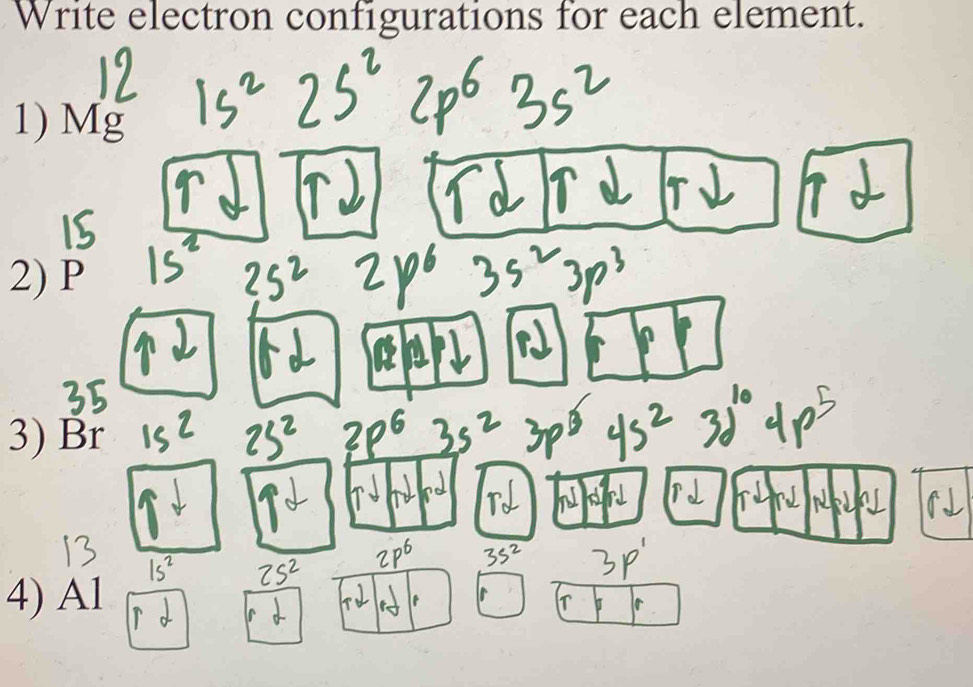 Write electron configurations for each element.
12
1) Mg 1s² 2s² 2p⁶ 3s²
15
2) P 1s² 2s² 2p⁶ 3s² 3p³
35
3) Br 1s² 2s² 2p⁶ 3s² 3p⁶ 4s² 3d¹⁰ 4p⁵
13
1s² 2s² 2p⁶ 3s² 3p¹
4) Al